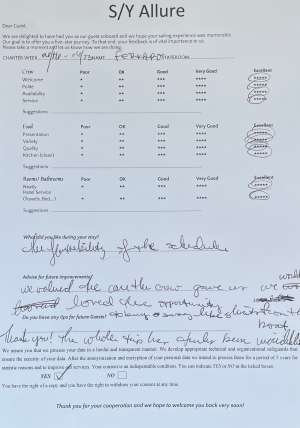 S/Y Allure
Dear Guest,
We are delighted to have had you as our guest onboard and we hope your sailing experience was memorable.
Our goal is to offer you a five-star journey. To that end, your feedback is of vital importance to us.
Please take a moment and let us know how we are doing.
CHARTER WEEK NAME
Crew Poor OK Good Very Good Excellent
Welcome * ** *** **** *****
Polite * ** *** **** *****
Availability * ** *** **** *****
Service * ** *** **** *****
Suggestions
Food Poor OK Good Very Good Excellent
Presentation * ** *** **** *****
Variety * ** *** **** *****
Quality * ** *** **** *****
Kitchen (clean) * ** *** **** *****
Suggestions
Rooms/ Bathrooms Poor OK Good Very Good Excellent
Neatly * ** *** **** *****
Hotel Service
(Towels, Bed...) * ** *** **** *****
Suggestions
What did you like during your stay?
the flexibility of the schedule
Advice for future improvement?
we valued the care the crew gave us we would
loved the opportunity
Do you have any tips for future Guests?
boat
Thank you! The whole has been incredible
We assure you that we process your data in a lawful and transparent manner. We develop appropriate technical and organizational safeguards that
ensure the security of your data. After the anonymization and encryption of your personal data we intend to process them for a period of 5 years for
statistic reasons and to improve our services. Your consent is an indispensable condition. You can indicate YES or NO in the linked boxes.
YES NO
You have the right of access and you have the right to withdraw your consent at any time.
Thank you for your cooperation and we hope to welcome you back very soon!